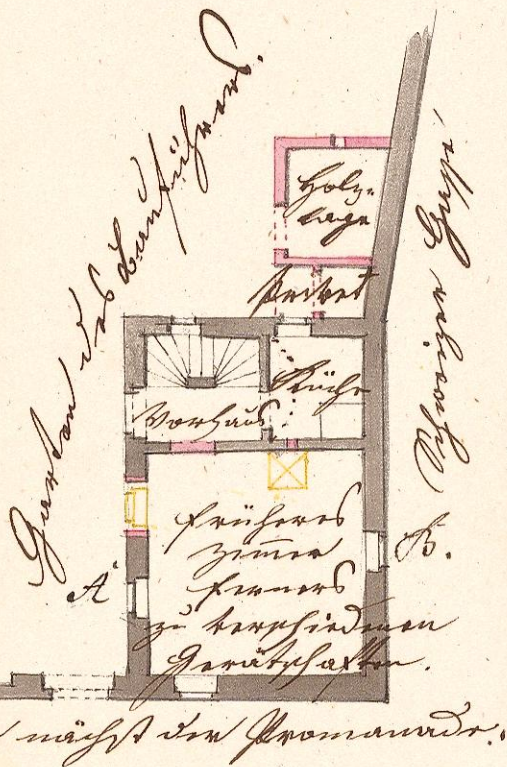 Garten des Bauführers.
Holz-
lage
Privet
Küche
Vorhaus
Schweizer
früheres
Zimmer
ferners
zu verschiedenen
Gerätschaften.
A
B.
nächst der Promenade.